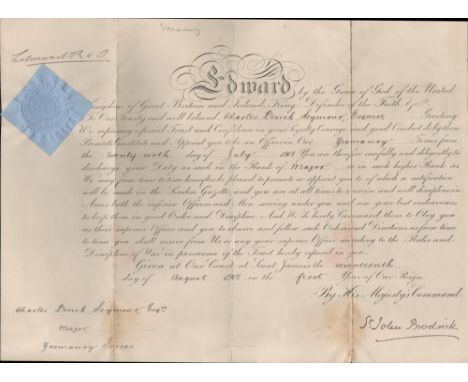 Yeomanry
Edward R & I
Edward by the Grace of God, of the United
Kingdom of Great Britain and Ireland, King, Defender of the Faith, &c.
To Our Trusty and well beloved Charles Derick Seymour, Esquire, Greeting.
We, reposing especial Trust and Confidence in your Loyalty, Courage, and good Conduct, do by these
Presents Constitute and Appoint you to be an Officer in Our Yeomanry Forces from
the twenty sixth day of July 1901. You are therefore carefully and diligently to
discharge your Duty as such in the Rank of Major or in such higher Rank as
We may from time to time hereafter be pleased to promote or appoint you to, of which a notification
will be made in the London Gazette, and you are at all times to exercise and well discipline in
Arms both the inferior Officers and Men serving under you and use your best endeavours
to keep them in good Order and Discipline. And We do hereby Command them to Obey you
as their superior Officer and you to observe and follow such Orders and Directions as from time
to time you shall receive from Us or any your superior Officer according to the Rules and
Discipline of War in pursuance of the Trust hereby reposed in you.
Given at Our Court at Saint James's the seventeenth
day of August 1901 in the first Year of Our Reign.
By His Majesty's Command.
Charles Derick Seymour, Esqr.
Major,
Yeomanry Forces
St John Brodrick